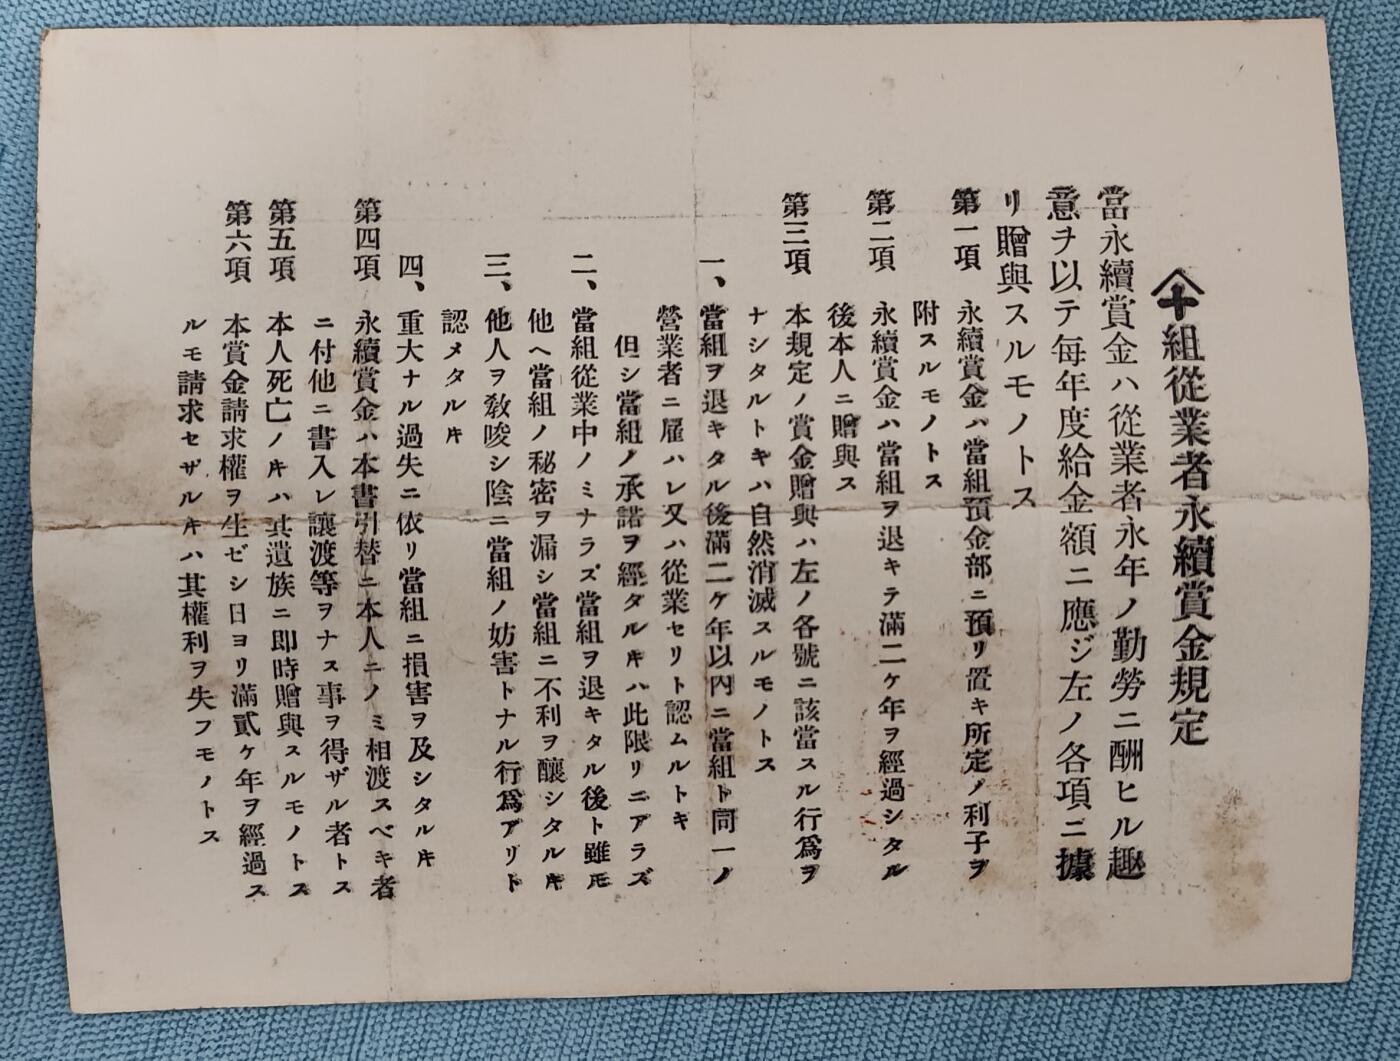 𠆢十組從業者永續賞金規定
當永續賞金ハ從業者永年ノ勤勞ニ酬ヒル趣
意ヲ以テ毎年度給金額ニ應ジ左ノ各項ニ據
リ贈與スルモノトス
第一項 永續賞金ハ當組預金部ニ預リ置キ所定ノ利子ヲ
附スルモノトス
第二項 永續賞金ハ當組ヲ退キラ滿二ケ年ヲ經過シタル
後本人ニ贈與ス
第三項 本規定ノ賞金贈與ハ左ノ各號ニ該當スル行爲ヲ
ナシタルトキハ自然消滅スルモノトス
一、當組ヲ退キタル後滿二ケ年以內ニ當組ト同一ノ
營業者ニ雇ハレ又ハ從業セリト認ムルトキ
但シ當組ノ承諾ヲ經タルキハ此限リニアラズ
二、當組從業中ノミナラズ當組ヲ退キタル後ト雖モ
他ヘ當組ノ秘密ヲ漏シ當組ニ不利ヲ釀シタルキ
三、他人ヲ敎唆シ陰ニ當組ノ妨害トナル行爲アリト
認メタルキ
四、重大ナル過失ニ依リ當組ニ損害ヲ及シタルキ
第四項 永續賞金ハ本書引替ニ本人ニノミ相渡スベキ者
ニ付他ニ書入レ讓渡等ヲナス事ヲ得ザル者トス
第五項 本人死亡ノキハ其遺族ニ即時贈與スルモノトス
第六項 本賞金請求權ヲ生ゼシ日ヨリ滿貳ケ年ヲ經過ス
ルモ請求セザルキハ其權利ヲ失フモノトス